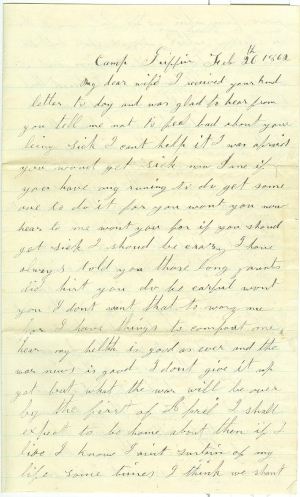 Camp Griffin Feb 20th 1862
My dear wife I received your kind
letter to day and was glad to hear from
you tell me not to feel bad about your
being sick I cant help it I was afraid
you would get sick now Jane if
your have any runing to do get some
one to do it for you wont you now
hear to me wont you for if you should
get sick I should be crazy I have
always told you those long jaunts
did hurt you do be carful wont
you I dont want that to worry me
for I have things to comfort one
hear my helth is good as ever and the
war news is good I dont give it up
yet but what the war will be over
by the first of April I shall
expect to be home about then if I
live I know I aint surtain of my
life some times I think we shant